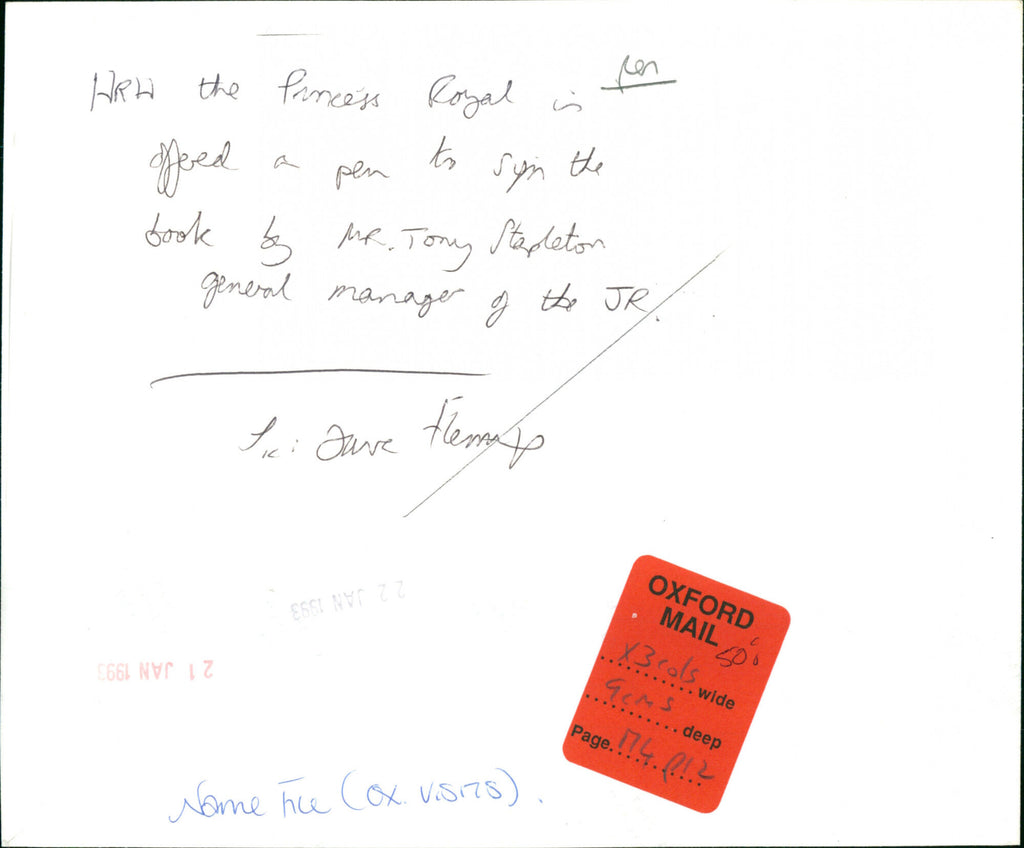 pen
HRH the Princess Royal is
offered a pen to sign the
book by MR. Tony Stapleton
general manager of the JR.
Pic: Dave Fleming
22 JAN 1993
21 JAN 1993
OXFORD
MAIL
50%
X3cols wide
9cms deep
Page
Name File (OX. VISITS).